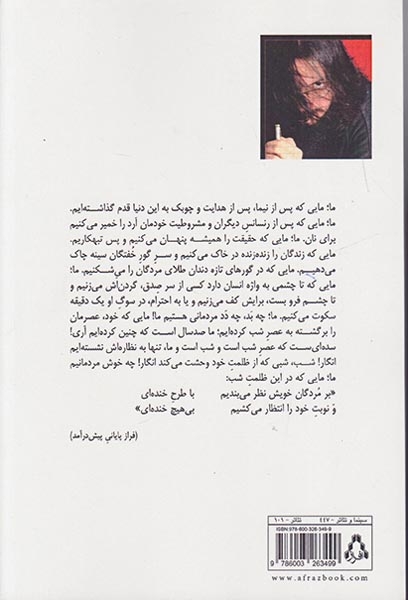 ما؛ مایی که پس از نیما، پس از هدایت و چوبک به این دنیا قدم گذاشته‌ایم.
ما؛ مایی که پس از رنسانسِ دیگران و مشروطیت خودمان آرد را خمیر می‌کنیم
برای نان. ما؛ مایی که حقیقت را همیشه پنهان می‌کنیم و پس تبهکاریم.
مایی که زندگان را زنده‌زنده در خاک می‌کنیم و سرِ گورِ خُفتگان سینه چاک
می‌دهیم. مایی که در گورهای تازه دندان طلای مردگان را می‌شکنیم. ما؛
مایی که تا چشمی به واژه انسان دارد کسی از سر صِدق، گردن‌اش می‌زنیم و
تا چشم فرو بست، برایش کف می‌زنیم و یا به احترام، در سوگِ او یک دقیقه
سکوت می‌کنیم. ما؛ چه بَد، چه دَد مردمانی هستیم ما! مایی که خود، عصرمان
را برگشته به عصرِ شب کرده‌ایم؛ ما صدسال است که چنین کرده‌ایم آری!
سده‌ای‌ست که عصرِ شب است و شب است و ما، تنها به نظاره‌اش نشسته‌ایم
انگار! شب، شبی که از ظلمتِ خود وحشت می‌کند انگار! چه خوش مردمانیم
ما؛ مایی که در این ظلمتِ شب:
«بر مُردگان خویش نظر می‌بندیم با طرحِ خنده‌ای
وَ نوبتِ خود را انتظار می‌کشیم بی‌هیچ خنده‌ای»
(فراز پایانیِ پیش‌درآمد)
سینما و تئاتر - ۴۴۷ تئاتر - ۱۰۱
ISBN: 978-600-326-349-9
9 786003 263499
افراز
www.afrazbook.com